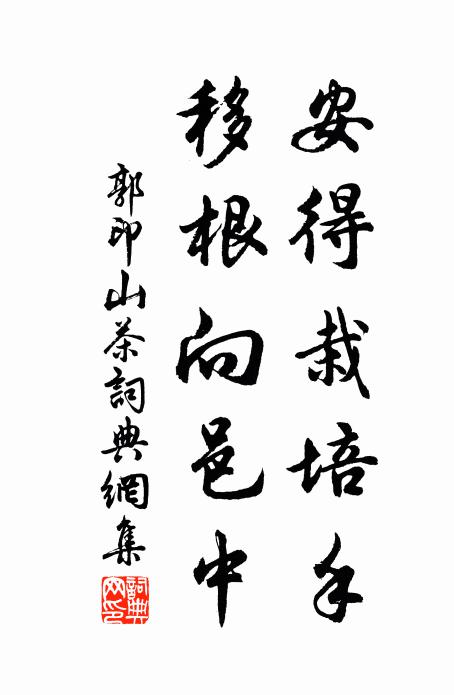 安得栽培手
移根向邑中
郭印山茶詞典網集
詞典網印